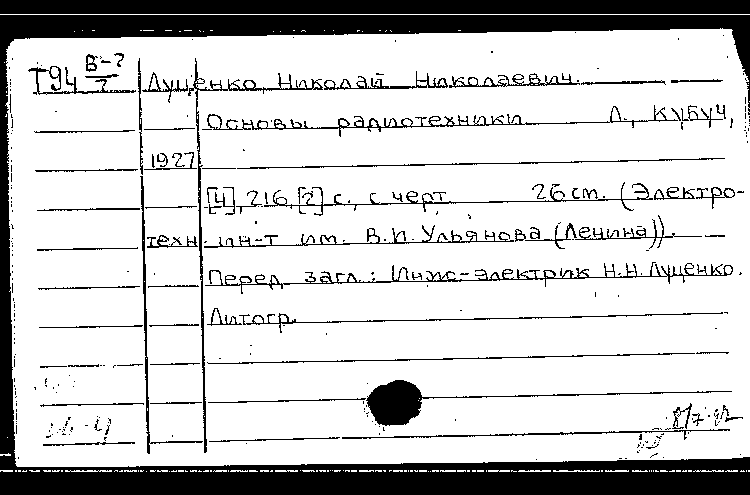 Т94 В-7/7 Луценко, Николай Николаевич.
Основы радиотехники Л., Кубуч,
1927
[4], 216, [2] с., с черт 26 см. (Электро-
техн. ин-т им. В.И. Ульянова (Ленина)).
Перед загл.: Инж-электрик Н.Н. Луценко.
Литогр.